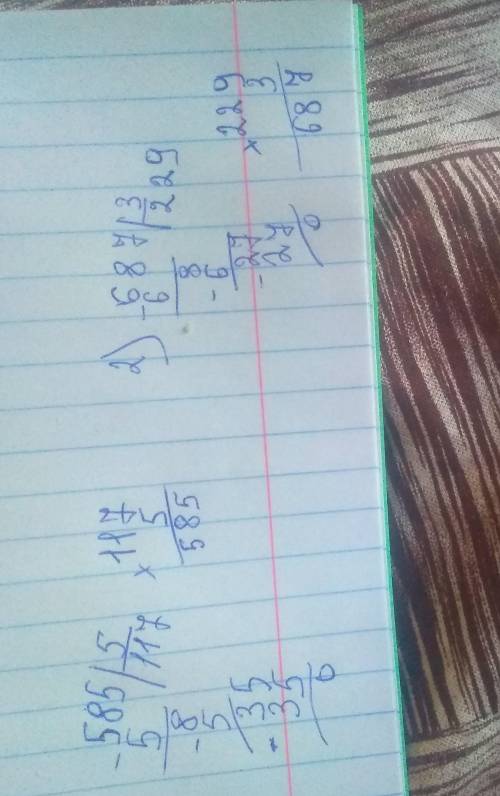 -585|5
5 117
-8
5
-35
35
0
×117
5
585
2) -687|3
6 229
-8
6
-27
27
0
×229
3
687